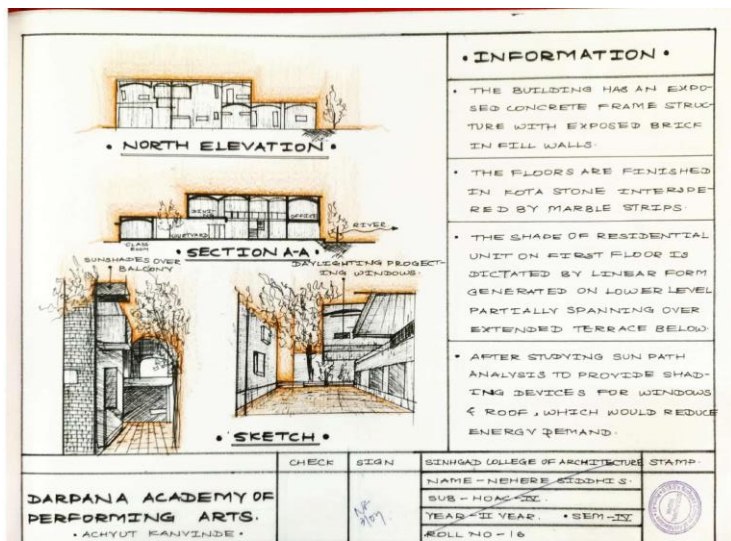 • NORTH ELEVATION •
OFFICE
RIVER
COURTYARD
CLASS
ROOM
• SECTION A-A •
SUNSHADES OVER
BALCONY
DAYLIGHTING PROGECT-
ING WINDOWS.
• SKETCH •
• INFORMATION •
• THE BUILDING HAS AN EXPO-
SED CONCRETE FRAME STRUC-
TURE WITH EXPOSED BRICK
IN FILL WALLS.
• THE FLOORS ARE FINISHED
IN KOTA STONE INTERSPE-
RED BY MARBLE STRIPS.
• THE SHAPE OF RESIDENTIAL
UNIT ON FIRST FLOOR IS
DICTATED BY LINEAR FORM
GENERATED ON LOWER LEVEL
PARTIALLY SPANNING OVER
EXTENDED TERRACE BELOW.
• AFTER STUDYING SUN PATH
ANALYSIS TO PROVIDE SHAD-
ING DEVICES FOR WINDOWS
& ROOF, WHICH WOULD REDUCE
ENERGY DEMAND.
DARPANA ACADEMY OF
PERFORMING ARTS.
• ACHYUT KANVINDE •
CHECK
SIGN
SINHGAD COLLEGE OF ARCHITECTURE
STAMP.
NAME - NEHERE SIDDHI S.
SUB - HOAC-IV.
YEAR - II YEAR. • SEM - IV
ROLL NO - 16